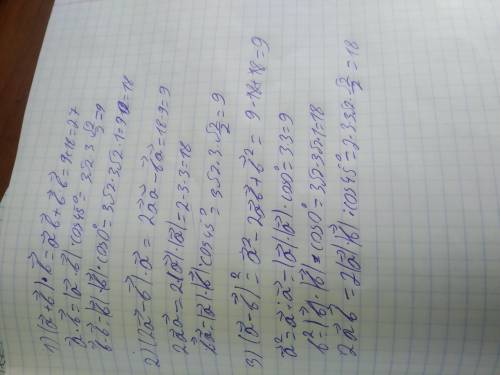 1) (a⃗+b⃗)·b⃗ = a⃗b⃗+b⃗·b⃗ = 9+18=27
a⃗·b⃗ = |a⃗|·|b⃗|·cos45° = 3√2·3·√2/2 = 9
b⃗·b⃗ = |b⃗|·|b⃗|·cos0° = 3√2·3√2·1 = 9·2=18
2) (2a⃗-b⃗)·a⃗ = 2a⃗a⃗-b⃗a⃗ = 18-9=9
2a⃗a⃗ = 2|a⃗|·|a⃗| = 2·3·3=18
b⃗a⃗ = |a⃗|·|b⃗|·cos45° = 3√2·3·√2/2 = 9
3) (a⃗-b⃗)² = a⃗²-2a⃗b⃗+b⃗² = 9-18+18=9
a⃗² = a⃗·a⃗ = |a⃗|·|a⃗|·cos0° = 3·3=9
b² |b⃗|·|b⃗|·cos0° = 3√2·3√2·1=18
2a⃗b⃗ = 2|a⃗|·|b⃗|·cos45° = 2·3·3√2·√2/2 = 18